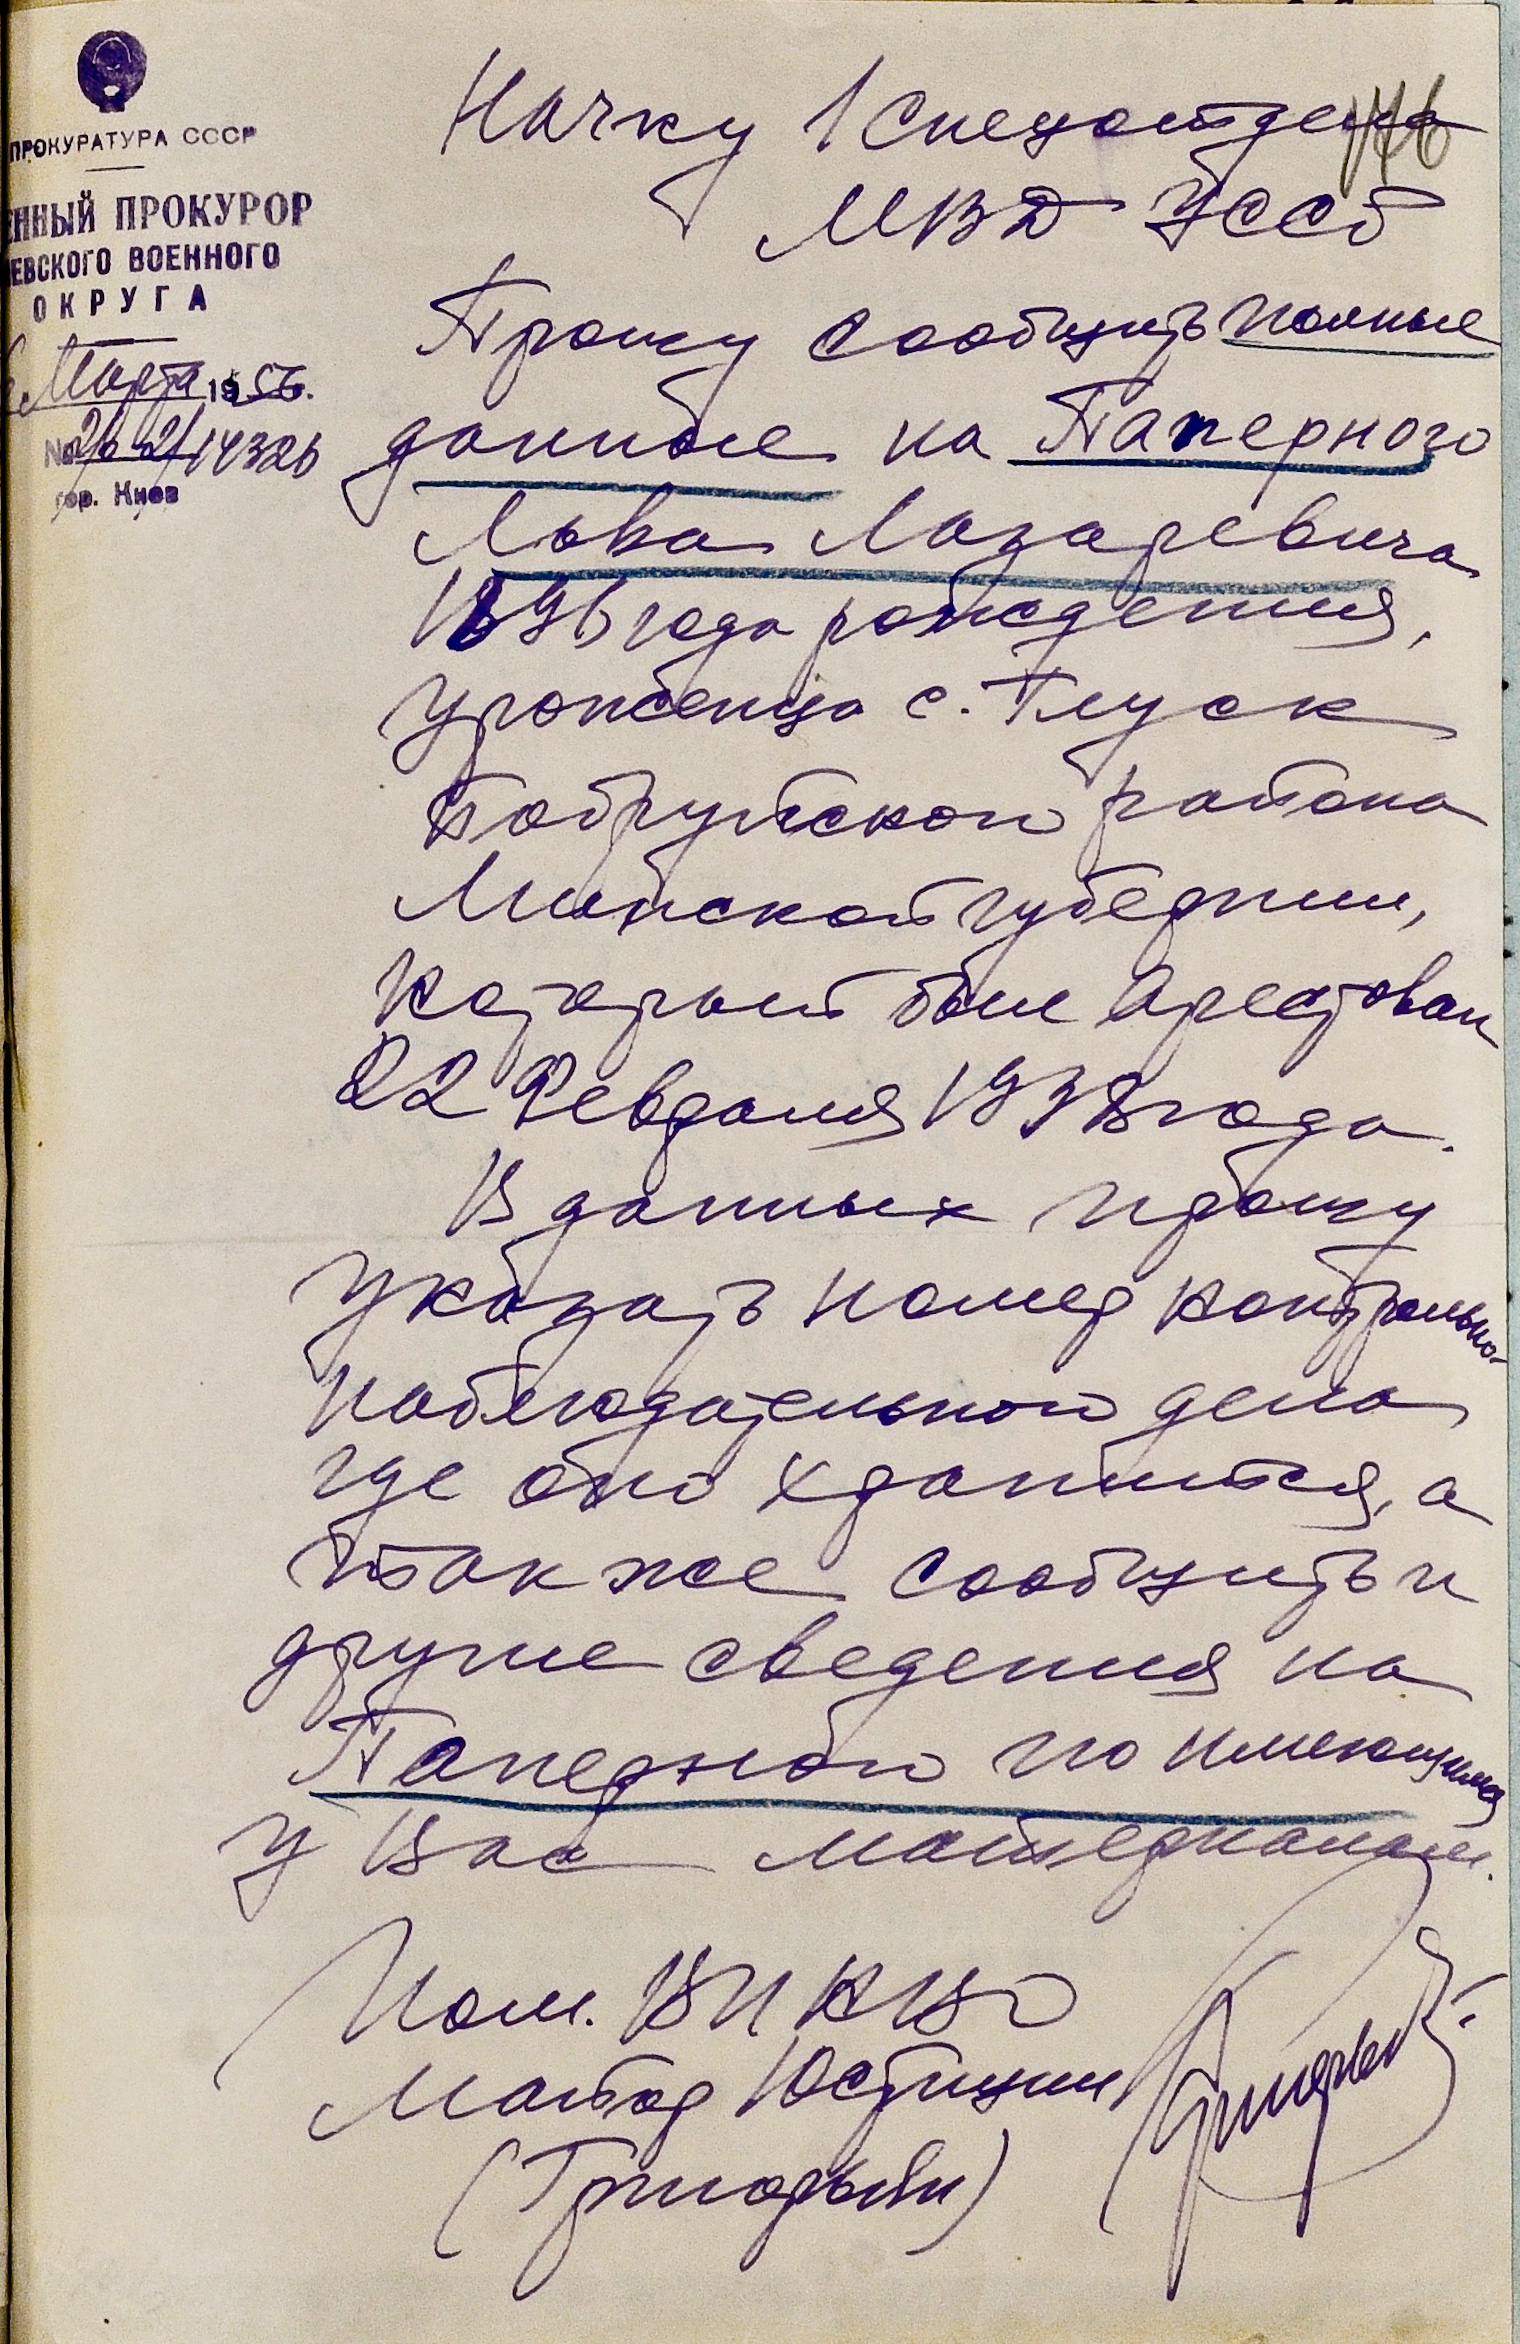 ПРОКУРАТУРА СССР
ЕННЫЙ ПРОКУРОР
ЕВСКОГО ВОЕННОГО
ОКРУГА
Марта 1956.
№ 2/14326
гор. Киев
176
Начку 1 Спецотдела
МВД УССР
Прошу сообщить полные
данные на Паперного
Льва Лазаревича
1896 года рождения,
уроженца с. Глуск
Бобруйского района
Минской губернии,
который был арестован
22 февраля 1938 года.
В данных прошу
указать номер контрольно-
наблюдательного дела
где оно хранится, а
так же сообщить и
другие сведения на
Паперного по имеющимся
у Вас материалам.
Пом. ВП КВО
Майор Юстиции
(Григорьян)